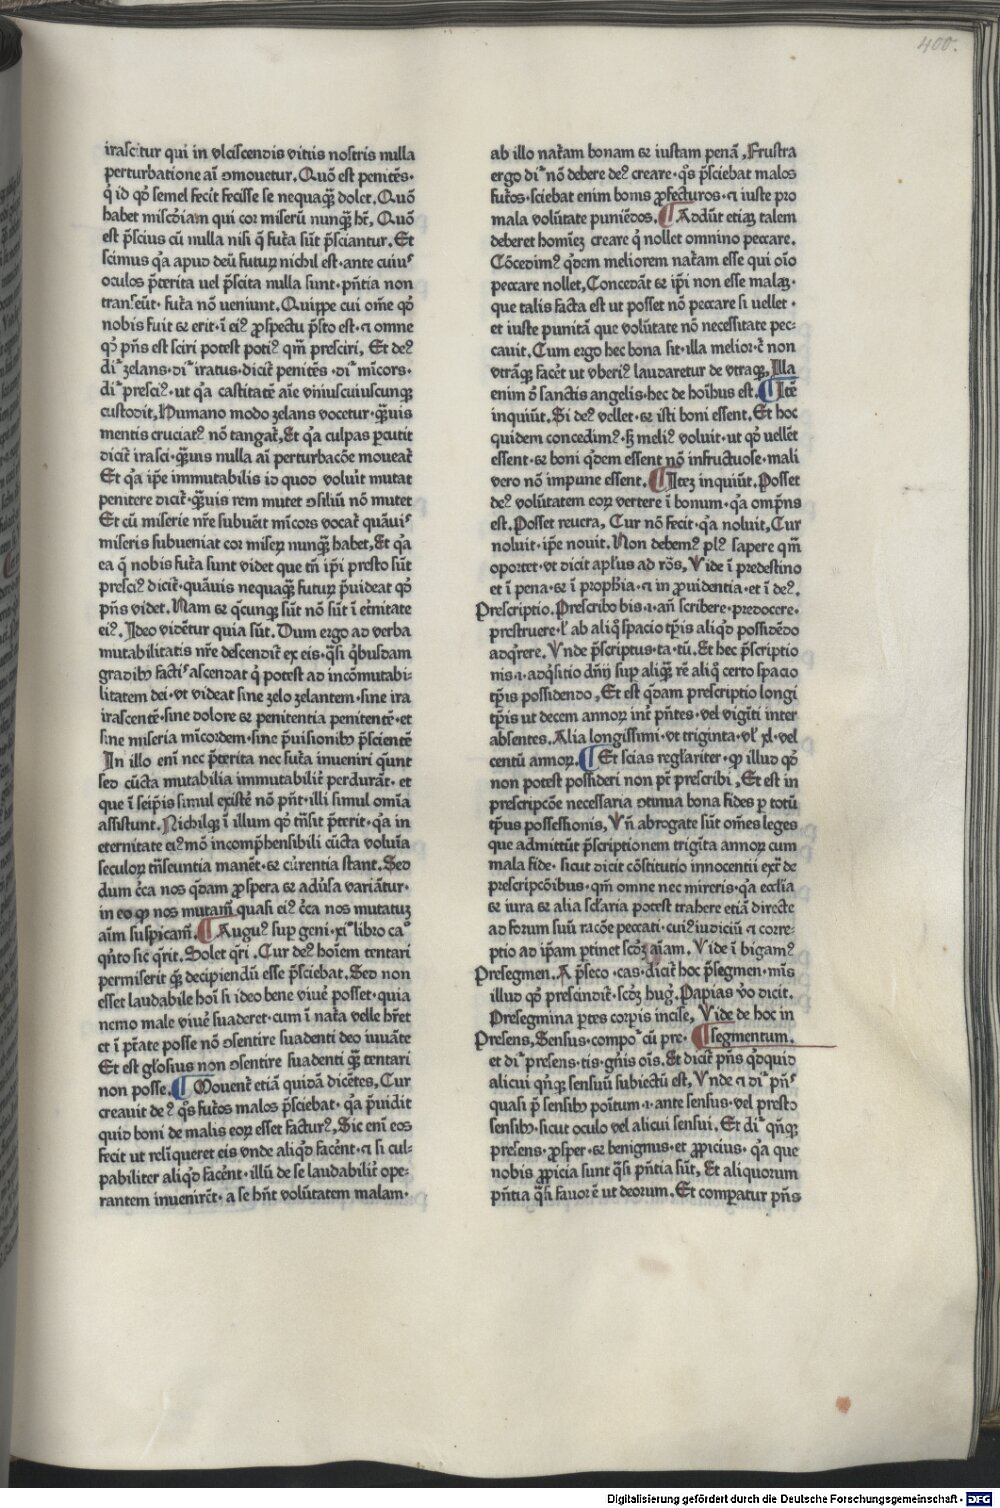 400.
irascitur qui in vlciscendis vitiis nostris nulla
perturbatione aĩ ꝯmouetur. Quõ est penitẽs·
q̇ id qď semel fecit fecisse se nequaꝙ̃ dolet. Quõ
habet miscďiam qui cor miserũ nunꝙ̃ hr̃. Quõ
est p̃scius cũ nulla nisi q̃ futa sũt p̃sciantur. Et
scimus qa apud deũ futuꝝ nichil est·ante cuiuˢ
oculos p̃terita uel p̃scita nulla sunt· pñtia non
transeũt· futa nõ ueniunt. Quippe cui om̃e qď
nobis fuit ⁊ erit·ĩ eiꝰ ꝓspectu p̃sto est·⁊ omne
qď pñs est sciri potest potiꝰ qm̃ presciri, Et deꝰ
di᷑ zelans·di᷑ iratus·dicit᷑ penitẽs ·di᷑ mĩcors·
di᷑ presciꝰ·ut qa castitatẽ aĩe vniuscuiuscunqꝫ
custodit, Humano modo zelans vocetur·ꝙ̃uis
mentis cruciatꝰ nõ tangat᷑, Et qa culpas ꝑcutit
dicit᷑ irasci·ꝙ̃uis nulla aĩ perturbacõe moueat᷑
Et qa ip̃e immutabilis id quod voluit mutat
penitere dicit᷑·ꝙ̃uis rem mutet ꝯsiliũ nõ mutet
Et cũ miserie nr̃e subuẽit mĩcors vocat᷑ quãuiˢ
miseris subueniat cor miseꝝ nunꝙ̃ habet, Et qa
ea q̃ nobis futa sunt videt que tñ ip̃i presto sũt
presciꝰ dicit᷑·quãuis nequaꝙ̃ futuꝝ p̃uideat qď
pñs videt. Nam ⁊ q̃cunqꝫ sũt nõ sũt ĩ et᷑nitate
eiꝰ. Ideo vidẽtur quia sũt. Dum ergo ad verba
mutabilitatis nr̃e descendit᷑ ex eis·q̃si q̃busdam
gradibꝫ factiˢ ascendat q̇ potest ad incõmutabi-
litatem dei·vt videat sine zelo zelantem·sine ira
irascentẽ·sine dolore ⁊ penitentia penitentẽ·et
sine miseria mĩcordem·sine p̃uisionibꝫ p̃scientẽ
In illo enĩ nec p̃terita nec futa inueniri q̃unt
sed cũcta mutabilia immutabilit᷑ perdurãt· et
que ĩ seip̃is simul existe᷑ nõ pñt·illi simul om̃ia
assistunt. Nichilqꝫ ĩ illum qď tñsit p̃terit·qa in
eternitate eiꝰmõ incomp̃hensibili cũcta voluĩa
seculoꝝ tñseuntia manẽt·⁊ currentia stant. Sed
dum c̃ca nos q̃dam ꝓspera ⁊ adũsa variãtur·
in eo ꝙ nos mutam᷑ quasi eiꝰ c̃ca nos mutatuꝫ
aĩm suspicam᷑. ¶Auguꝰ suꝑ geni·xi᷑ libro caᵒ
q̃nto sic q̃rit. Solet q̃ri. Cur deꝰ hoĩem tentari
permiserit ꝙ̃ decipiendũ esse p̃sciebat. Sed non
esset laudabile hoĩ si ideo bene viue᷑ posset·quia
nemo male viue᷑ suaderet·cum ĩ nata velle hr̃et
et ĩ p̃tate posse nõ ꝯsentire suadenti deo iuuãte
Et est gľosius non ꝯsentire suadenti ꝙ̃ tentari
non posse. ¶Mouent᷑ etiã quidã dicẽtes, Cur
creauit deꝰ q̃s futos malos p̃sciebat· qa p̃uidit
quid boni de malis eoꝝ esset facturꝰ, Sic enĩ eos
fecit ut relĩqueret eis vnde aliqď facẽnt·⁊ si cul-
pabiliter aliqď facẽnt·illũ de se laudabilit᷑ ope-
rantem inuenirẽt·a se hñt volũtatem malam·
ab illo natam bonam ⁊ iustam penã. Frustra
ergo di᷑ nõ debere deꝰ creare·q̃s p̃sciebat malos
futos·sciebat enim bonis ꝓfecturos·⁊ iuste pro
mala volũtate puniẽdos. ¶Addũt etiaꝫ talem
deberet homiẽꝫ creare q̇ nollet omnino peccare.
Cõcedimꝰ q̃dem meliorem natam esse qui oĩo
peccare nollet, Concedãt ⁊ ip̃i non esse malaꝫ·
que talis facta est ut posset nõ peccare si uellet·
et iuste punitã que volũtate nõ necessitate pec-
cauit. Cum ergo hec bona sit·illa melior·c᷑ non
vtrãqꝫ facẽt ut vberiꝰ laudaretur de vtraqꝫ, Illa
enim ď sanctis angelis·hec de hoĩbus est. ¶Itẽ
inquiũt. Si deꝰ vellet·⁊ isti boni essent. Et hoc
quidem concedimꝰ·ꝫ meliꝰ voluit·ut qď uellẽt
essent·⁊ boni q̃dem essent nõ infructuose·mali
vero nõ impune essent. ¶Iteꝫ inquiũt. Posset
deꝰ volũtatem eoꝝ vertere ĩ bonum·qa omp̃ns
est. Posset reuera, Cur nõ fecit·qa noluit, Cur
noluit·ip̃e nouit. Non debemꝰ plꝰ sapere qm̃
oportet·vt dicit apľus ad rõs, Vide ĩ predestino
et ĩ pena·⁊ ĩ prop̃hia·⁊ in ꝓuidentia·et ĩ deꝰ.
Prescriptio. Prescribo bis·ı·añ scribere·predocere·
prestruere·ľ ab aliq̃ spacio tp̃is aliqď possidẽdo
adq̃rere. Vnde p̃scriptus·ta·tũ. Et hec p̃scriptio
nis·ı·adq̃sitio dñij suꝑ aliꝙ̃ rẽ aliq̃ certo spacio
tp̃is possidendo. Et est q̃dam prescriptio longi
tp̃is ut decem annoꝝ int᷑ p̃ntes·vel vigĩti inter
absentes. Alia longissimi·vt triginta·vľ xl·vel
centũ annoꝝ. ¶Et scias regľariter·ꝙ illud qď
non potest possideri non p̃t prescribi, Et est in
prescripcõe necessaria ꝯtinua bona fides ꝑ totũ
tp̃us possessionis, Vñ abrogate sũt om̃es leges
que admittũt p̃scriptionem trigĩta annoꝝ cum
mala fide· sicut dicit cõstitutio innocentii extᷓ de
prescripcõibus·qm̃ omne nec mireris·qa eccľia
⁊ iura ⁊ alia scľaria potest trahere etiã directe
ad forum suũ racõe peccati·cuiꝰ iudiciũ ⁊ corre-
ptio ad ip̃am ꝑtinet scďꝫ aĩam. Vide ĩ bigamꝰ
Presegmen. A p̃seco·cas·dicit᷑ hoc p̃segmen·mĩs
illud qď prescindit᷑·scďꝫ hug᷑. Papias v̊o dicit.
Presegmina ꝑtes corꝑis incise, Vide de hoc in
Presens, Sensus·compo᷑ cũ pre· ¶segmentum.
et di᷑ presens·tis·gñis oĩs. Et dicit᷑ pñs qďquid
alicui qñqꝫ sensuũ subiectũ est, Vnde ⁊ di᷑ pñˢ
quasi p̃ sensibꝫ põitum·ı·ante sensus·vel presto
sensibꝫ·sicut oculo vel alicui sensui. Et di᷑ qñqꝫ
presens·ꝓsper·⁊ benignus·et ꝓpicius· qa que
nobis ꝓpicia sunt q̃si pñtia sũt, Et aliquorum
pñtia q̃si fauor ẽ ut deorum. Et comparatur pñs
Digitalisierung gefördert durch die Deutsche Forschungsgemeinschaft - DFG